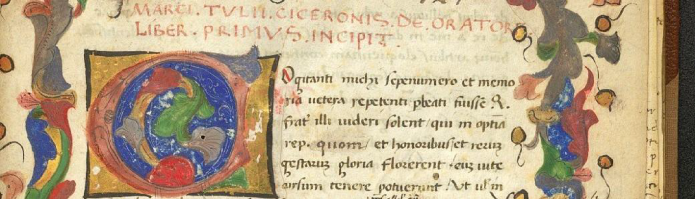 MARCI. TVLII. CICERONIS. DE. ORATORE
LIBER. PRIMVS. INCIPIT.
Ogitanti michi sepenumero et memo
ria uetera repetenti pbeati fuisse Q.
frat illi uideri solent, qui in optia
rep. quom, et honoribus et rerum
gestarum gloria florerent, eum uite
cursum tenere potuerunt. Ut uel in